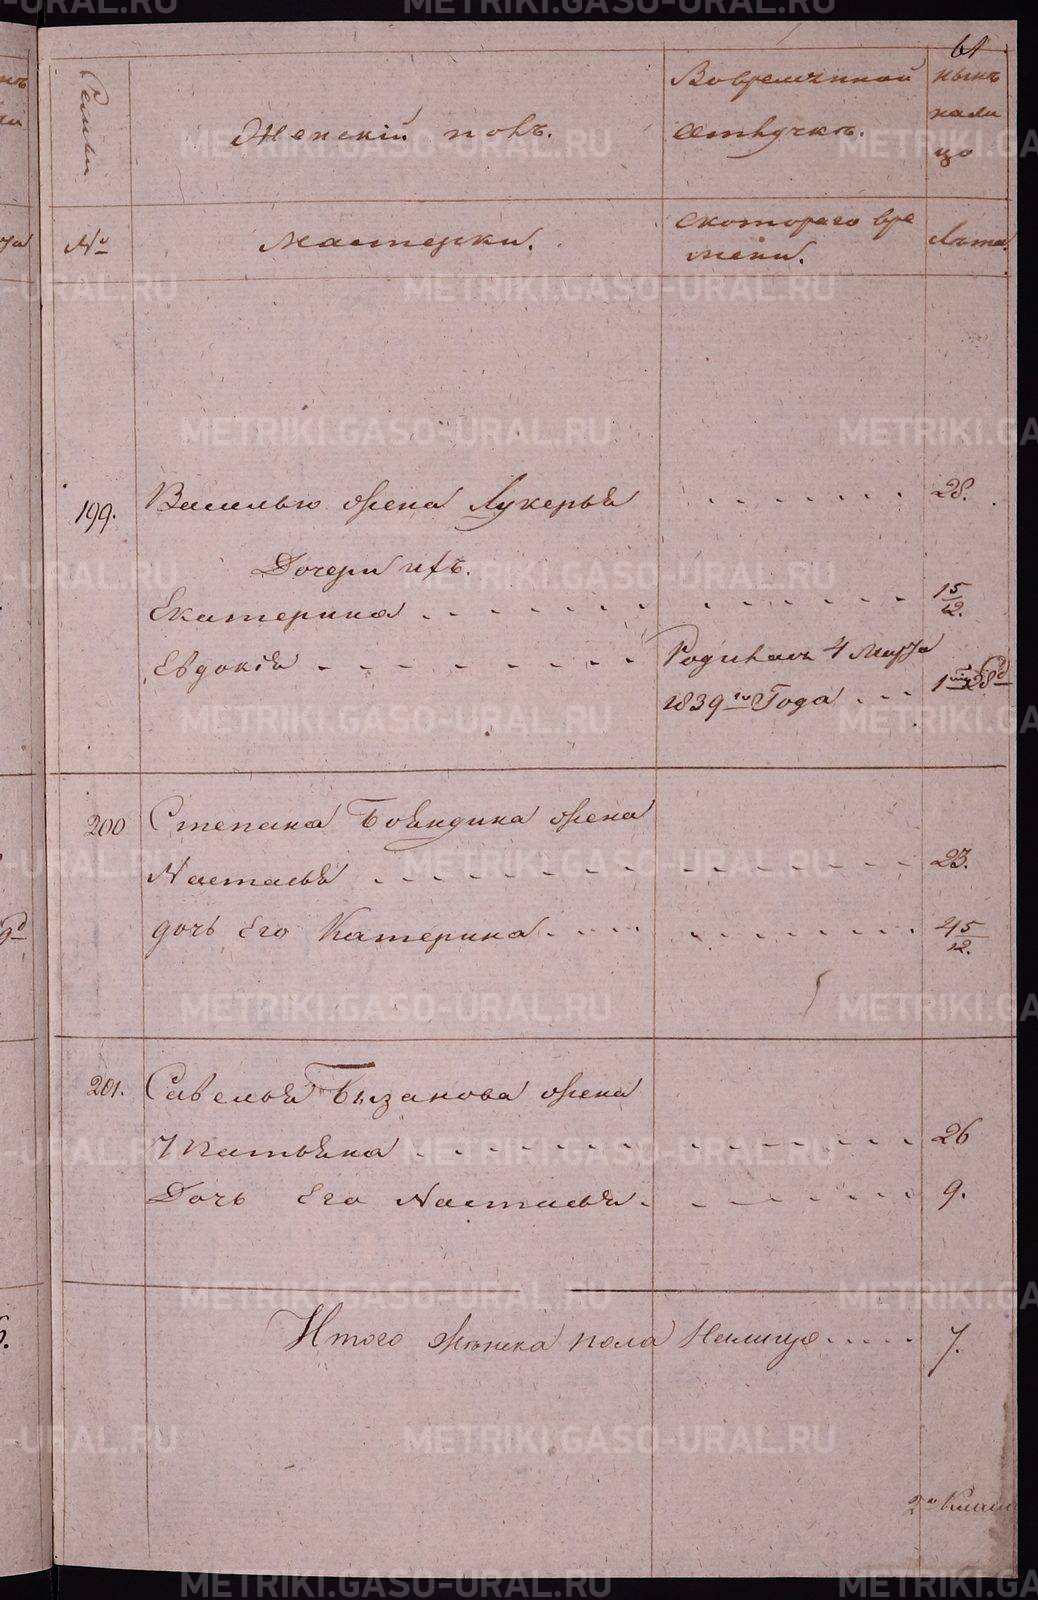 61
Семьи
Женскій полъ.
Во временной
отлучкѣ.
нынѣ
нали
цо
№
Мастерки.
с котораго вре
мени.
Лѣта.
199.
Василью жена Лукерья
28.
Дочери ихъ.
Екатерина
15/12.
Евдокія
Родилась 4 Марта
1839го Года
200
Степана Бояндина жена
Настасья
23.
дочь Его Катерина
201.
Савелья Бызанова жена
Упатьяна
26
Дочь Его Настасья
9.
Итого женска пола Налицо
7.
METRIKI.GASO-URAL.RU